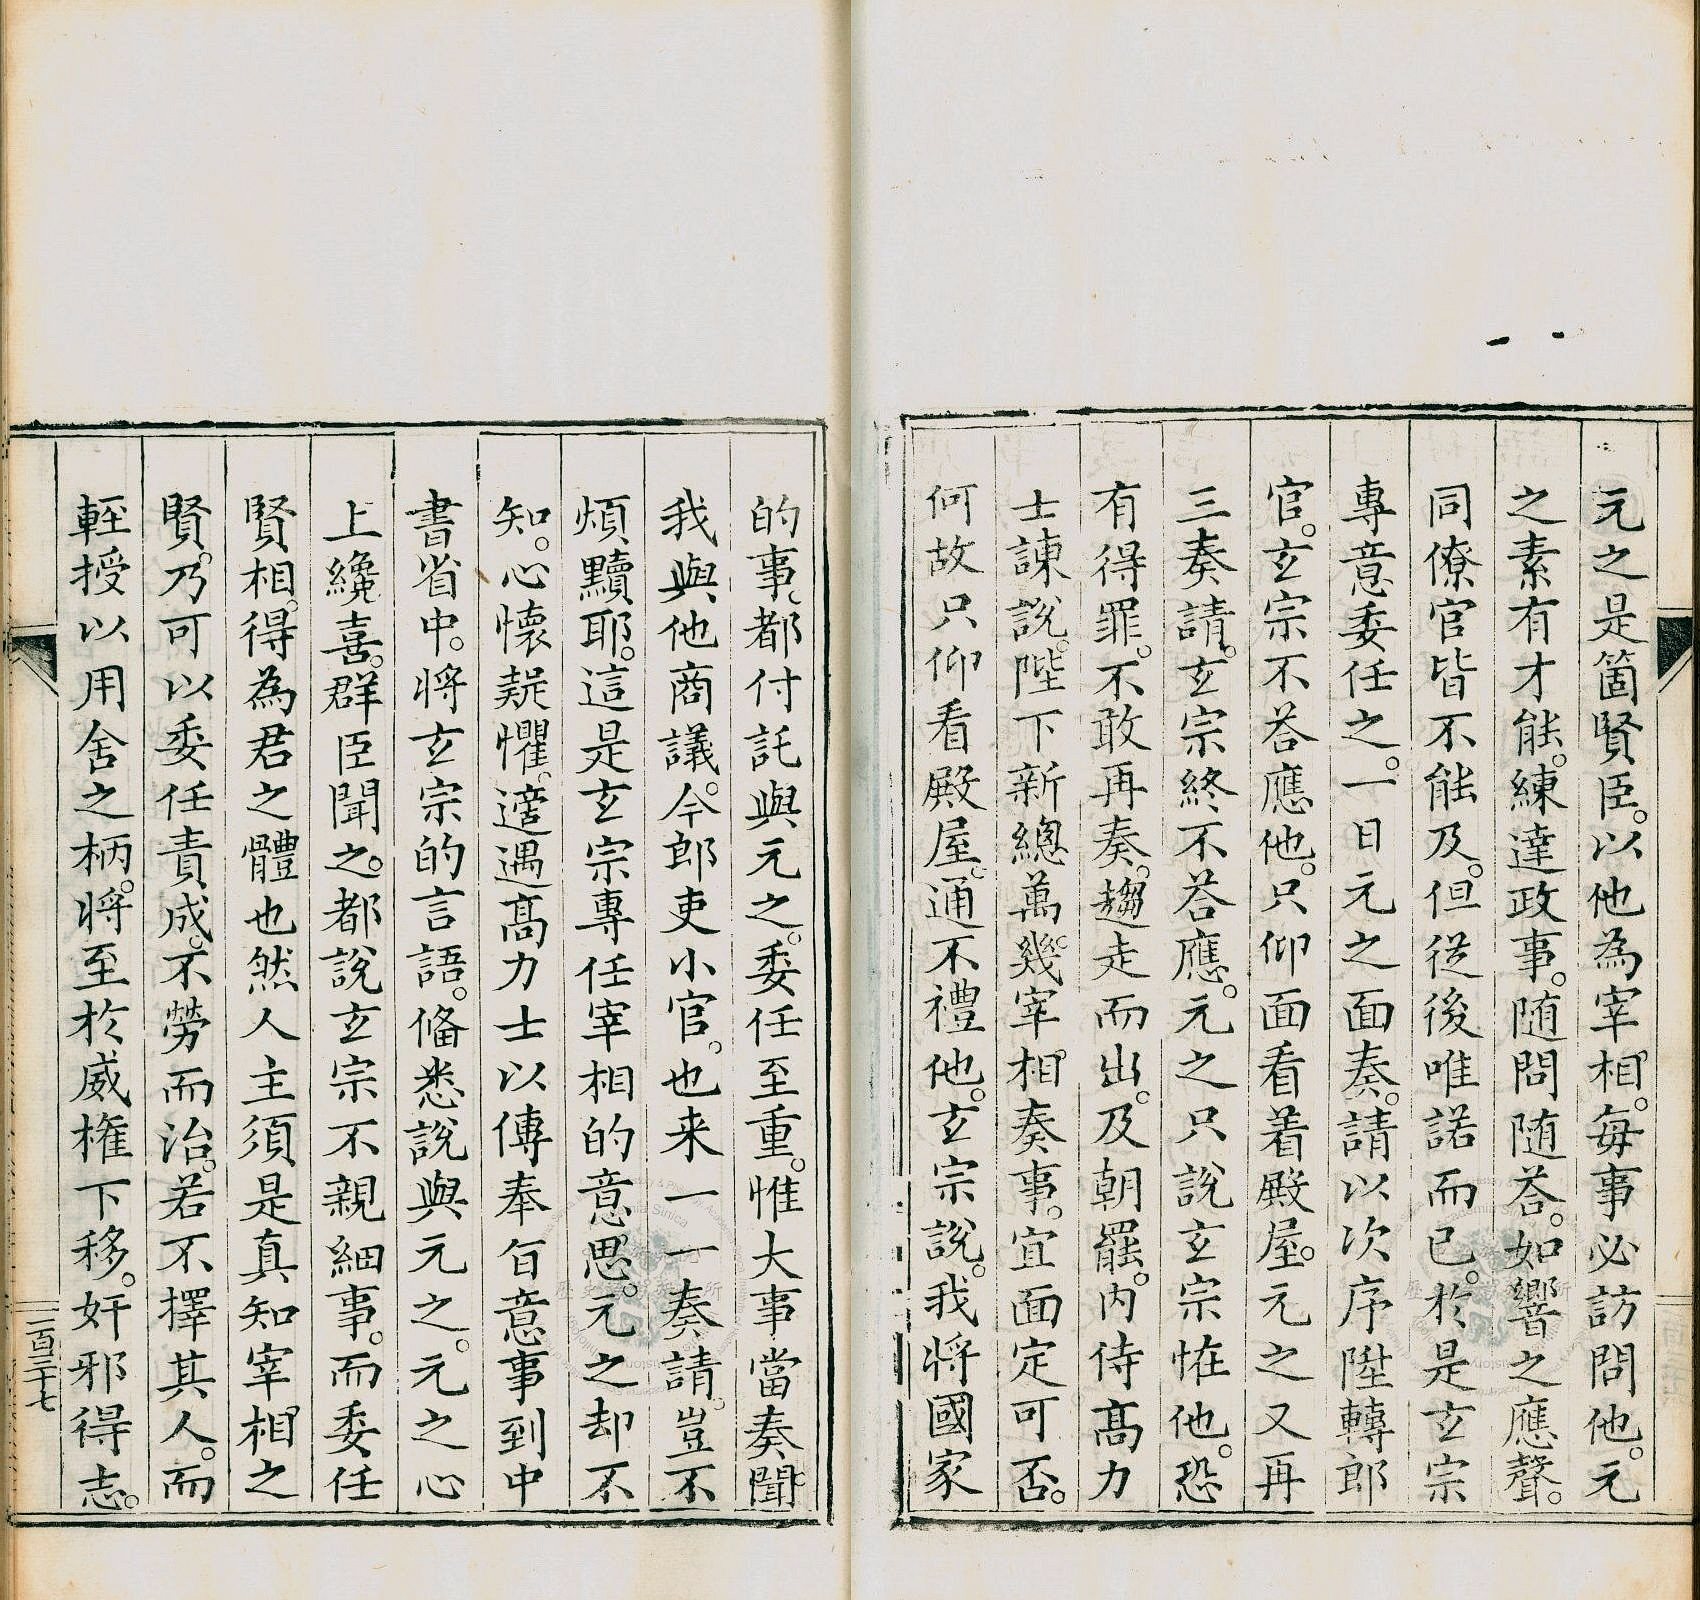 元之是箇賢臣。以他為宰相。每事必訪問他。元
之素有才能。練達政事。随問随荅。如響之應聲。
同僚官皆不能及。但従後唯諾而已。於是玄宗
專意委任之。一日元之面奏。請以次序陞轉郎
官。玄宗不荅應他。只仰面看着殿屋。元之又再
三奏請。玄宗終不荅應。元之只說玄宗恠他。恐
有得罪。不敢再奏。趨走而出。及朝罷。内侍髙力
士諫說。陛下新總萬幾。宰相奏事。宜面定可否。
何故只仰看殿屋。通不禮他。玄宗說。我将國家
的事。都付託與元之。委任至重。惟大事當奏聞。
我與他商議。今郎吏小官。也来一一奏請。豈不
煩黷耶。這是玄宗專任宰相的意思。元之却不
知。心懷疑懼。適遇髙力士以傳奉㫖意事到中
書省中。将玄宗的言語。俻悉說與元之。元之心
上纔喜。群臣聞之。都說玄宗不親細事。而委任
賢相。得為君之體也然人主須是真知宰相之
賢。乃可以委任責成。不勞而治。若不擇其人。而
輕授以用舍之柄。将至於威權下移。奸邪得志。
二百三十七